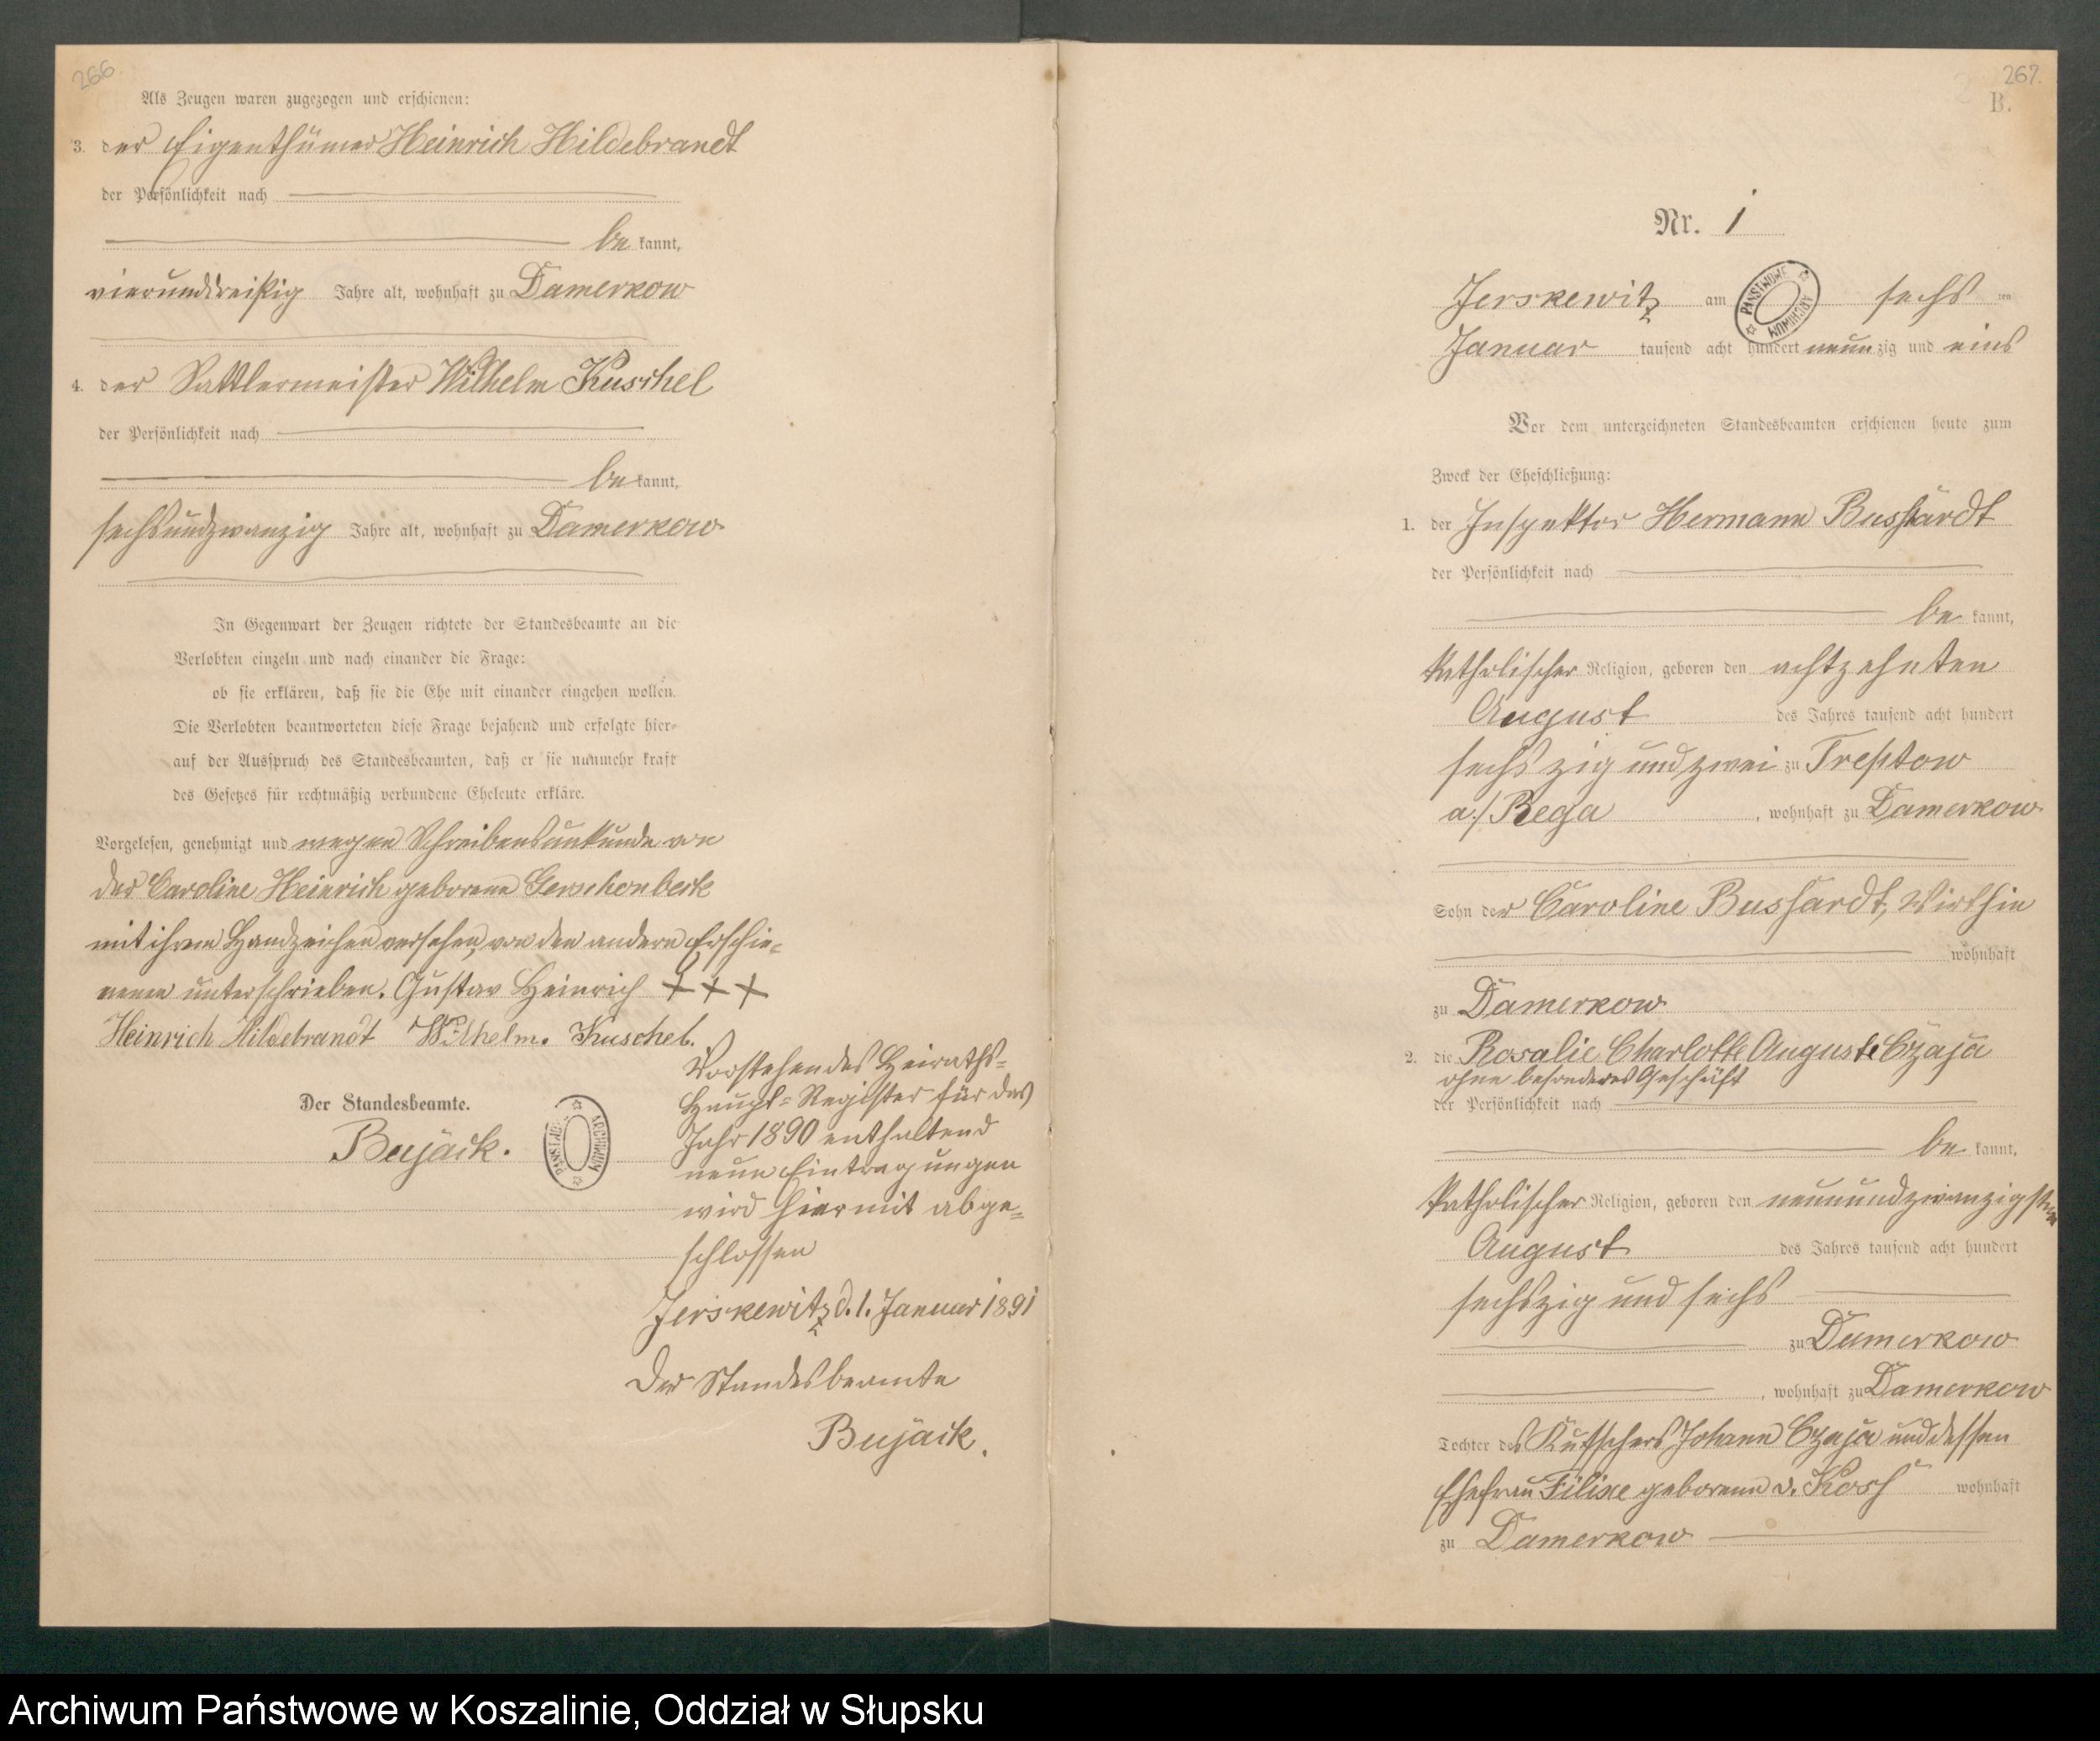 266.
Als Zeugen waren zugezogen und erschienen:
3. der Eigenthümer Heinrich Hildebrandt
der Persönlichkeit nach
be kannt,
vierunddreißig Jahre alt, wohnhaft zu Damerkow
4. der Sattlermeister Wilhelm Kuschel
der Persönlichkeit nach
be kannt,
sechsundzwanzig Jahre alt, wohnhaft zu Damerkow
In Gegenwart der Zeugen richtete der Standesbeamte an die
Verlobten einzeln und nach einander die Frage:
ob sie erklären, daß sie die Ehe mit einander eingehen wollen.
Die Verlobten beantworteten diese Frage bejahend und erfolgte hier-
auf der Ausspruch des Standesbeamten, daß er sie nunmehr kraft
des Gesetzes für rechtmäßig verbundene Eheleute erkläre.
Vorgelesen, genehmigt und wegen Schreibensunkunde von
der Caroline Heinrich geborene
mit ihrem Handzeichen versehen, von den andern Erschie=
nenen unterschrieben. Gustav Heinrich + + +
Heinrich Hildebrandt Wilhelm. Kuschel.
Der Standesbeamte.
Bujack.
PAŃSTW ARCHIWUM
Vorstehendes Heiraths=
Haupt=Register für das
Jahr 1890 enthaltend
neun Eintragungen
wird hiermit abge=
schlossen
Jerskewitz d. 1. Januar 1891
Der Standesbeamte
Bujack.
267.
B.
Nr. 1
Jerskewitz am sechs ten
PAŃSTWOWE ARCHIWUM
Januar tausend acht hundert neunzig und eins
Vor dem unterzeichneten Standesbeamten erschienen heute zum
Zweck der Eheschließung:
1. der Inspektor Hermann Bushardt
der Persönlichkeit nach
be kannt,
katholischer Religion, geboren den achtzehnten
August des Jahres tausend acht hundert
sechszig und zwei zu Treptow
a./Rega, wohnhaft zu Damerkow
Sohn der Caroline Bushardt, Wirthin
wohnhaft
zu Damerkow
2. die Rosalie Charlotte Auguste Czaja
ohne besonderes Geschäft
der Persönlichkeit nach
be kannt,
katholischer Religion, geboren den neunundzwanzigsten
August des Jahres tausend acht hundert
sechszig und sechs
zu Damerkow
, wohnhaft zu Damerkow
Tochter des Kutschers Johann Czaja und dessen
Ehefrau geborene v. wohnhaft
zu Damerkow
Archiwum Państwowe w Koszalinie, Oddział w Słupsku